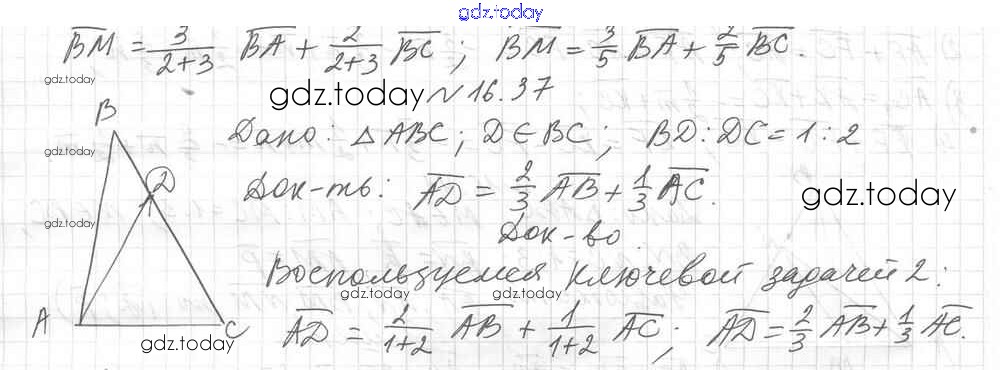 gdz.today
BM = 3/(2+3) BA + 2/(2+3) BC ; BM = 3/5 BA + 2/5 BC .
gdz.today
gdz.today № 16.37
B
Дано: △ ABC ; D ∈ BC ; BD : DC = 1 : 2
gdz.today
D
Док-ть: AD = 2/3 AB + 1/3 AC .
gdz.today
gdz.today
Док-во
Воспользуемся ключевой задачей 2 :
gdz.today gdz.today
A
C
AD = 2/(1+2) AB + 1/(1+2) AC ; AD = 2/3 AB + 1/3 AC .
gdz.today gdz.today